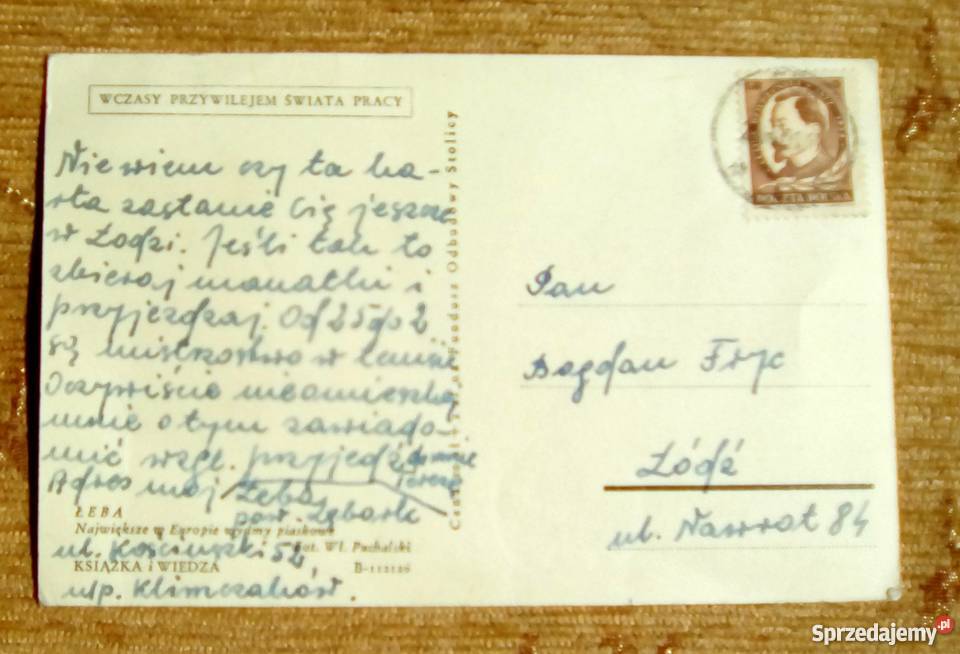 WCZASY PRZYWILEJEM ŚWIATA PRACY
Nie wiem czy ta ka-
rta zastanie Cię jeszcze
w Łodzi. Jeśli tak to
zbieraj manatki i
przyjeżdżaj. Od 25 do 2
są mistrzostwa w
Oczywiście nieomieszkaj
mnie o tym zawiado-
mić wzgl. przyjedź do mnie
teraz
Adres mój Łeba,
pow. Lębork
ul. Kościuszki 52,
u/p. Klimczaków.
ŁEBA
Największe w Europie wydmy piaskowe
Fot. Wł. Puchalski
KSIĄŻKA i WIEDZA
B-112126
Cena zł na Fundusz Odbudowy Stolicy
POCZTA POLSKA
Pan
Bogdan Fryc
Łódź
ul. Nawrot 84
Sprzedajemy.pl